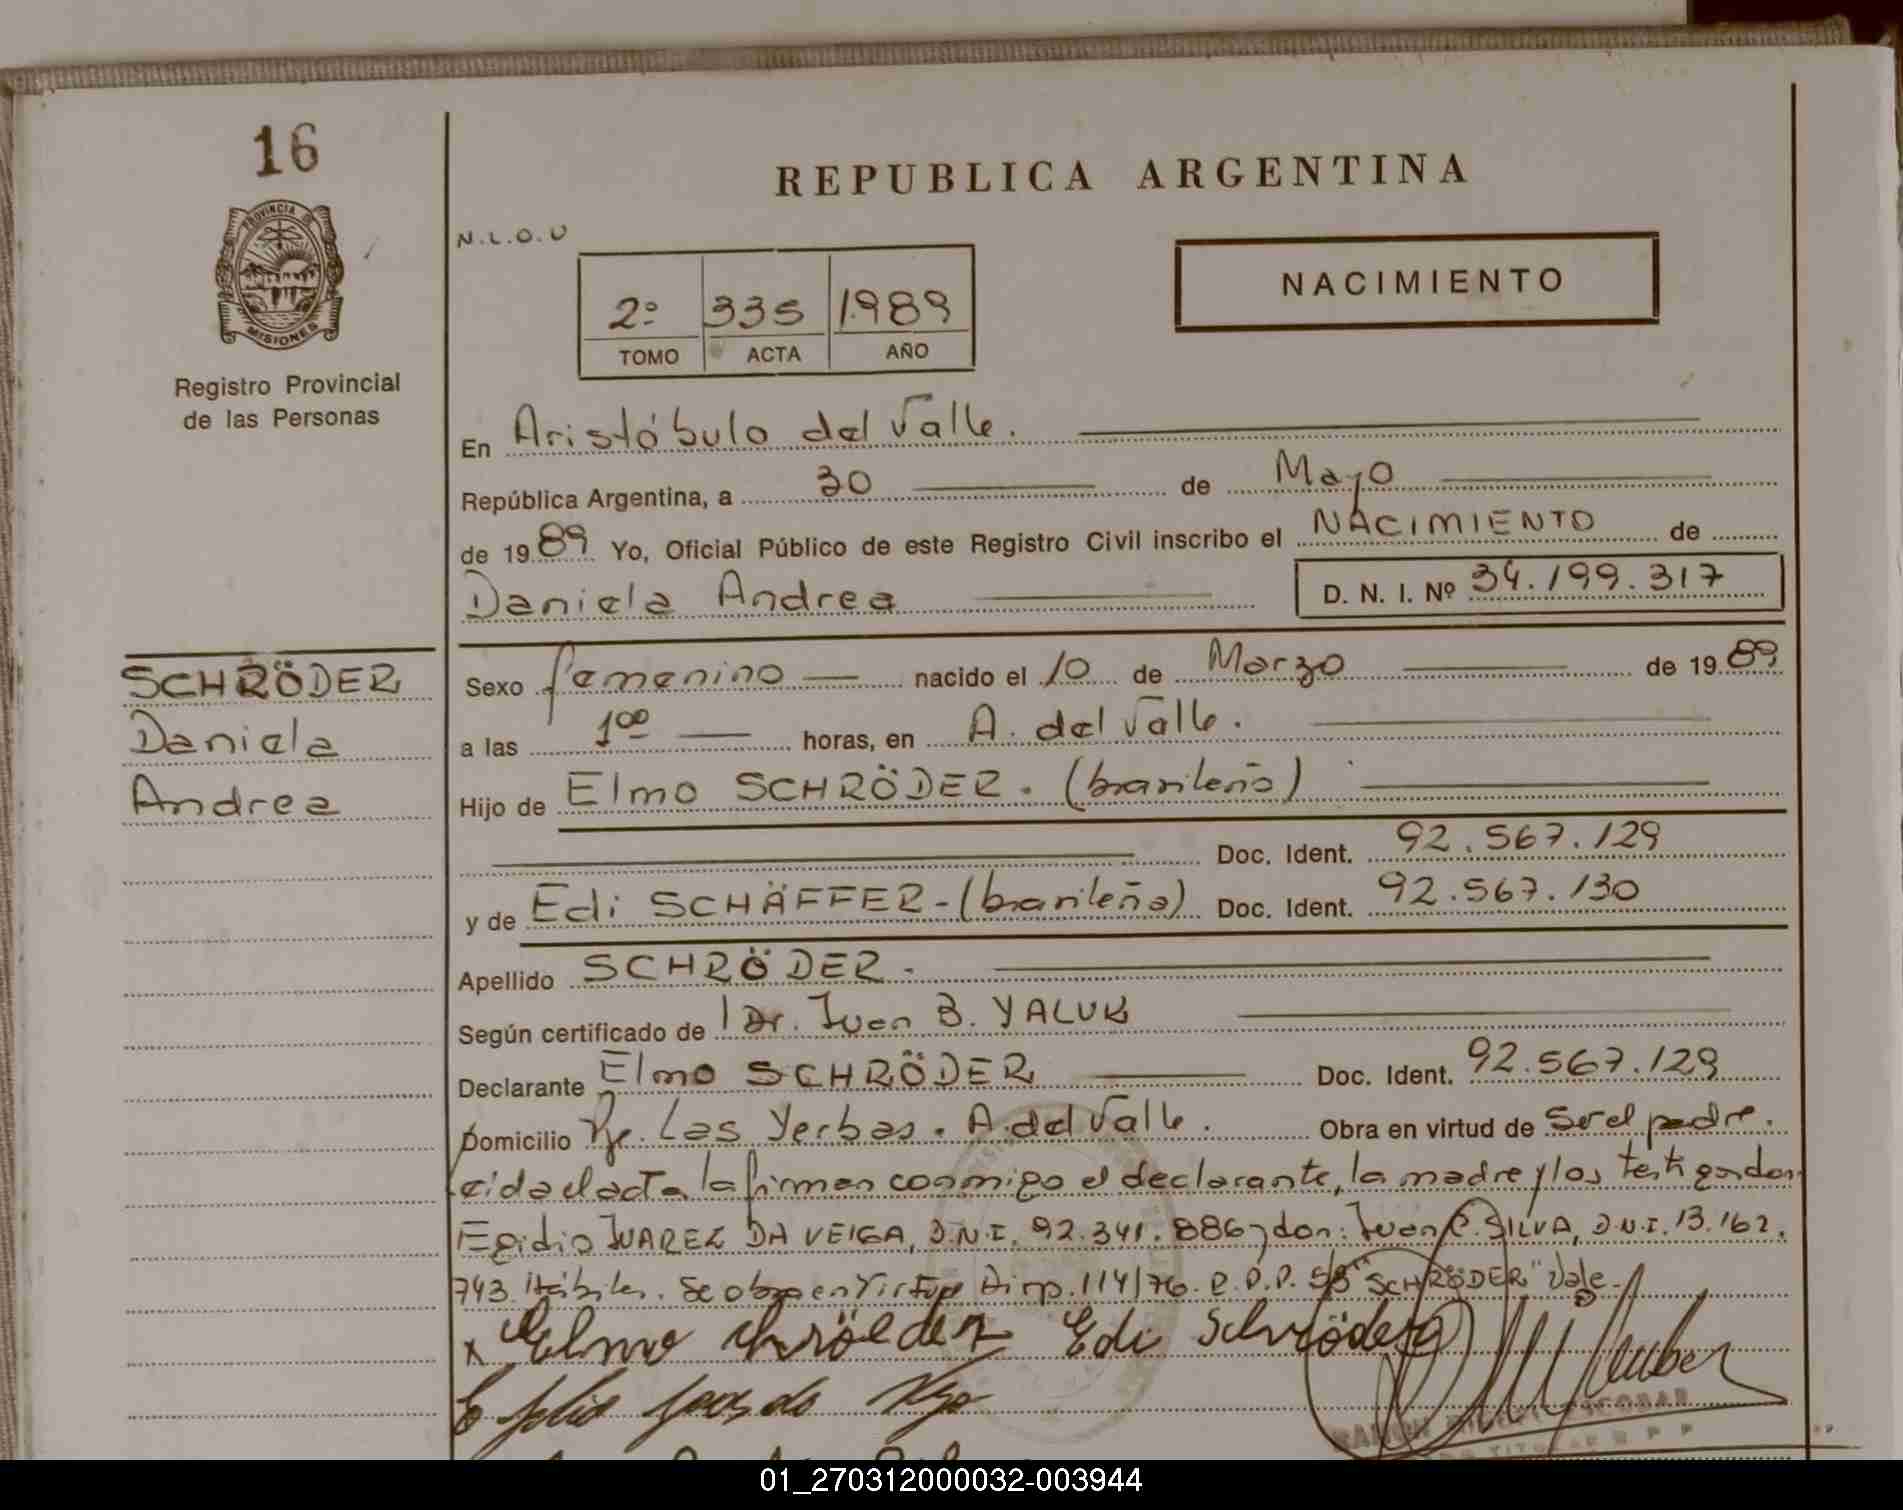 16
PROVINCIA DE
MISIONES
Registro Provincial
de las Personas
REPUBLICA ARGENTINA
N.L.O.U
2º 335 1989
TOMO ACTA AÑO
NACIMIENTO
En Aristóbulo del Valle.
República Argentina, a 30 de Mayo
de 1989 Yo, Oficial Público de este Registro Civil inscribo el NACIMIENTO de
Daniela Andrea D. N. I. Nº 34.199.317
SCHRÖDER
Daniela
Andrea
Sexo femenino nacido el 10 de Marzo de 1989
a las 1ºº horas, en A. del Valle.
Hijo de Elmo SCHRÖDER. (brasileño)
Doc. Ident. 92.567.129
y de Edi SCHÄFFER-(brasileña) Doc. Ident. 92.567.130
Apellido SCHRÖDER-
Según certificado de Dr. Juan B. YALUK
Declarante Elmo SCHRÖDER Doc. Ident. 92.567.129
Domicilio Pje. Las Yerbas. A. del Valle. Obra en virtud de Ser el padre.
Leída el acta la firman conmigo el declarante, la madre y los testigos don:
Egidio JUAREZ DA VEIGA, D.N.I. 92.341.886 y don: Juan C. SILVA, D.N.I. 13.162.
743. Hábiles. Se obra en Virtud 114/76. R.P.P. "SCHRÖDER" Vale.
x Elmo Edi Schröder
ESCOBAR
TITULAR R P P
01_270312000032-003944